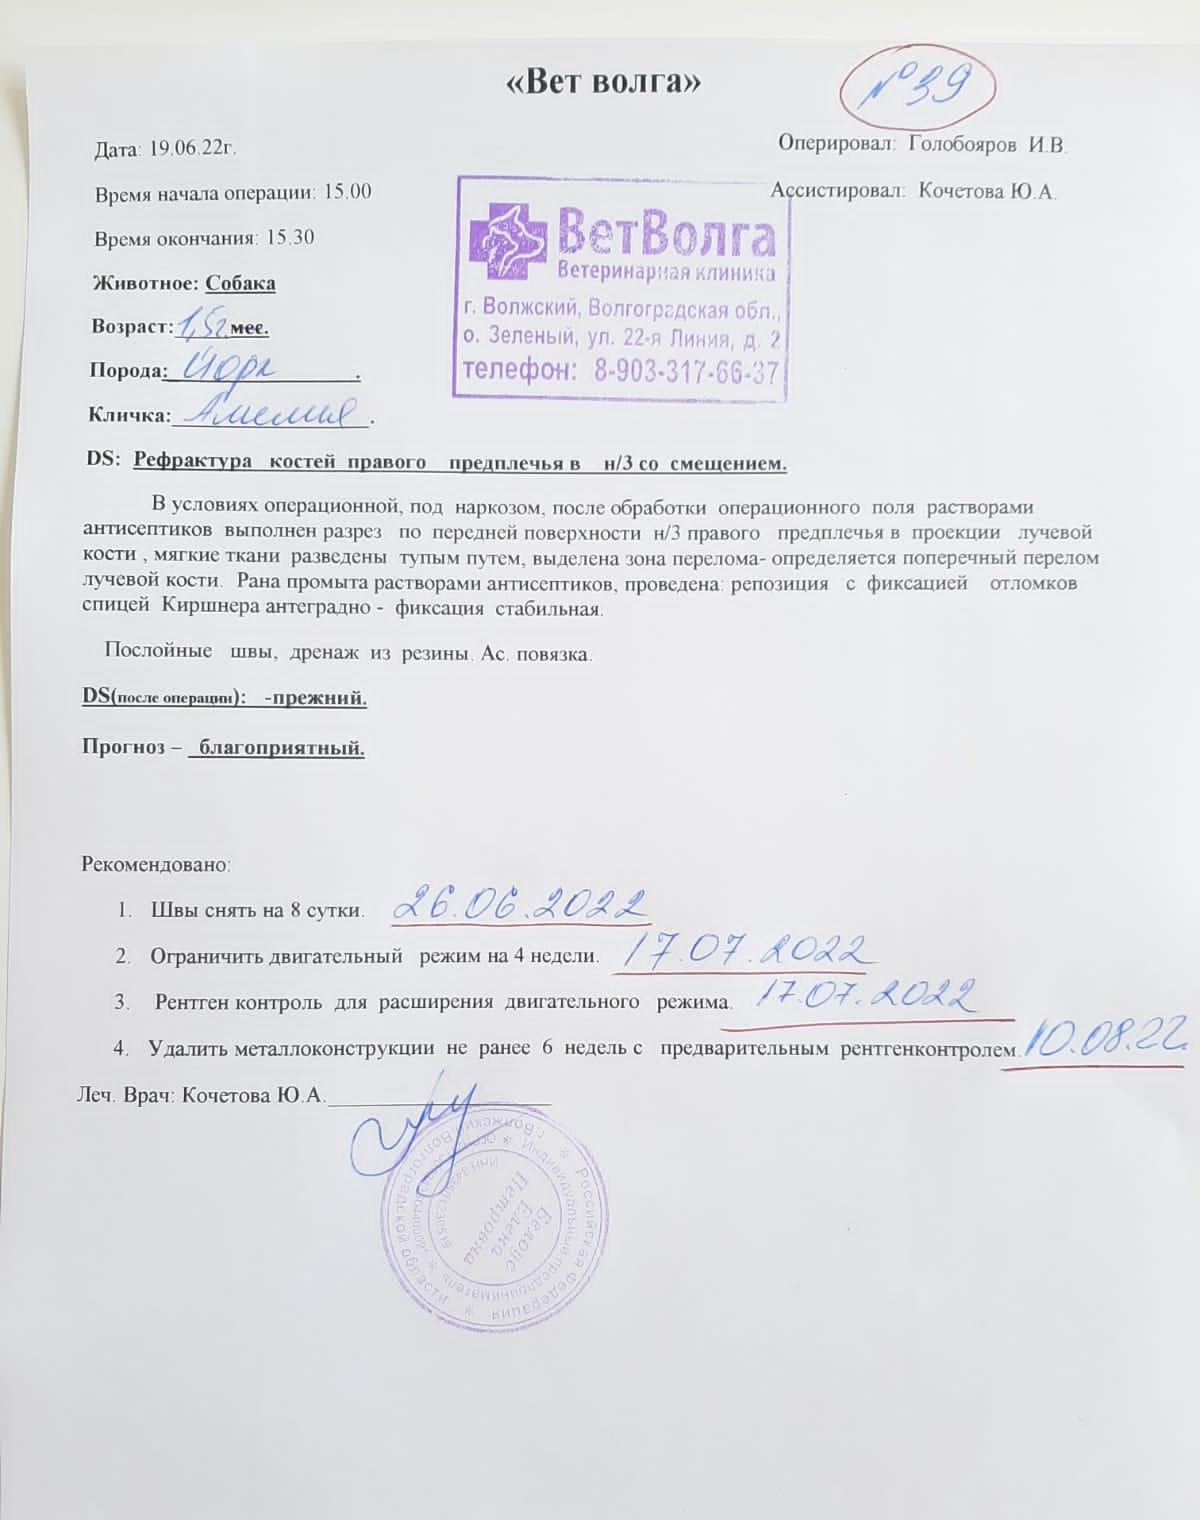 «Вет волга»
№39
Дата: 19.06.22г.
Оперировал: Голобояров И.В.
Время начала операции: 15.00
Ассистировал: Кочетова Ю.А.
Время окончания: 15.30
ВетВолга
Ветеринарная клиника
г. Волжский, Волгоградская обл.,
о. Зеленый, ул. 22-я Линия, д. 2
телефон: 8-903-317-66-37
Животное: Собака
Возраст: 1,5г мес.
Порода: Йорк .
Кличка: Амелия .
DS: Рефрактура костей правого предплечья в н/3 со смещением.
В условиях операционной, под наркозом, после обработки операционного поля растворами
антисептиков выполнен разрез по передней поверхности н/3 правого предплечья в проекции лучевой
кости , мягкие ткани разведены тупым путем, выделена зона перелома- определяется поперечный перелом
лучевой кости. Рана промыта растворами антисептиков, проведена: репозиция с фиксацией отломков
спицей Киршнера антеградно - фиксация стабильная.
Послойные швы, дренаж из резины. Ас. повязка.
DS(после операции): -прежний.
Прогноз – благоприятный.
Рекомендовано:
1. Швы снять на 8 сутки. 26.06.2022
2. Ограничить двигательный режим на 4 недели. 17.07.2022
3. Рентген контроль для расширения двигательного режима. 17.07.2022
4. Удалить металлоконструкции не ранее 6 недель с предварительным рентгенконтролем. 10.08.22
Леч. Врач: Кочетова Ю.А.
Российская Федерация
г. Волжский Волгоградской области
Индивидуальный предприниматель
Белоус
Елена
Петровна